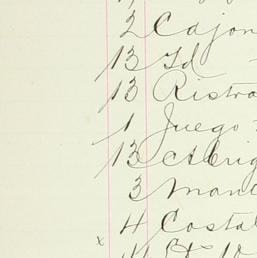 2 Cajon
13 Id
13 Ristra
1 Juego
13 Abrig
3 Mant
4 Costal
x 4